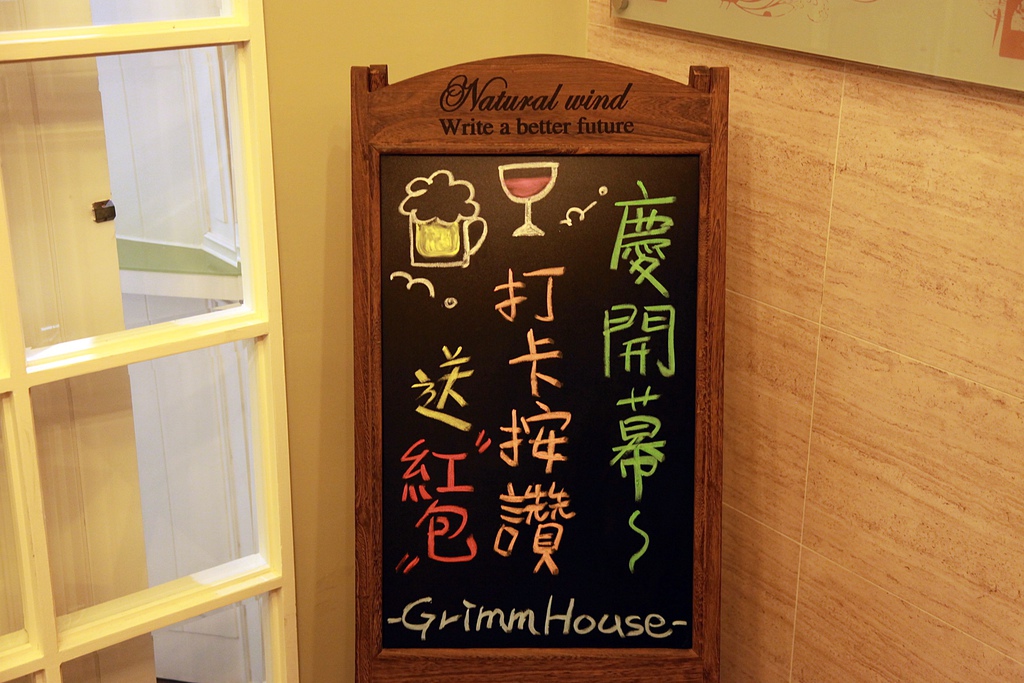 Natural wind
Write a better future
慶開幕~
打卡按讚
送"紅包"
-GrimmHouse-